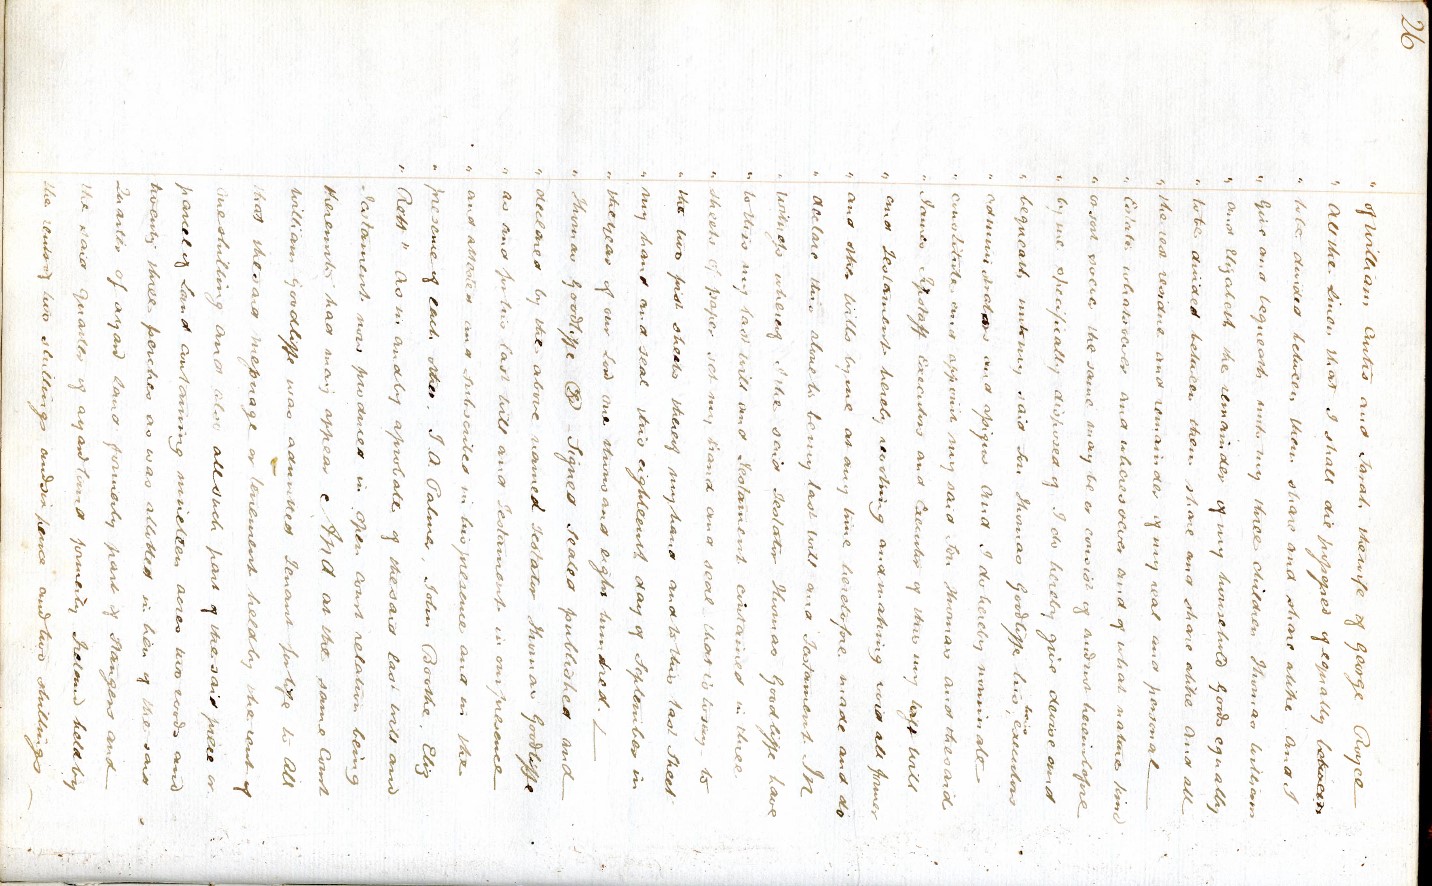 26
" of William Curtis and Sarah the wife of George Pryce
" All the Linen that I shall die possessed of equally between
" to be divided between them share and share alike And I
" Give and bequeath unto my three children Thomas William
" and Elizabeth the remainder of my household Goods equally
" to be divided between them share and share alike And all
" the rest residue and remainder of my real and personal
" Estate whatsoever and wheresoever and of what nature kind
" or sort soever the same may be or consist of and not hereinbefore
" by me specifically disposed of I do hereby give devise and
" bequeath unto my said Son Thomas Goodliffe his heirs executors
" administrators and assigns And I do hereby nominate
" constitute and appoint my said Son Thomas and the said
" James Executors and Executor of this my last Will
" and Testament hereby revoking and making void all former
" and other Wills by me at any time heretofore made and do
" declare this alone to be my last will and Testament In
" Witness whereof I the said Testator Thomas Goodliffe have
" to this my last will and Testament contained in three
" sheets of paper set my hand and seal that is to say to
" the two first sheets thereof my hand and to this last Sheet
" my hand and seal this eighteenth day of September in
" the year of our Lord one thousand eight hundred
" Thomas Goodliffe Signed sealed published and
" declared by the above named Testator Thomas Goodliffe
" as and for his last Will and Testament in our presence
" and attested and subscribed in his presence and in the
" presence of each other. I. D. Palmer, John Boothe, Eliz
" Rott" As in and by a probate of the said last will and
Testament now produced in Open Court relation being
thereunto had may appear And at the same Court
William Goodliffe was admitted Tenant for life to All
that the said messuage or tenement held by the rent of
one shilling And also all such part of the said piece or
parcel of Land containing nineteen acres two roods and
twenty three perches as was allotted in lieu of the said
Quarter of a yard Land formerly part of Stangers and
the said Quarter of a yard Land formerly held by
the rents of two shillings and six pence and two shillings